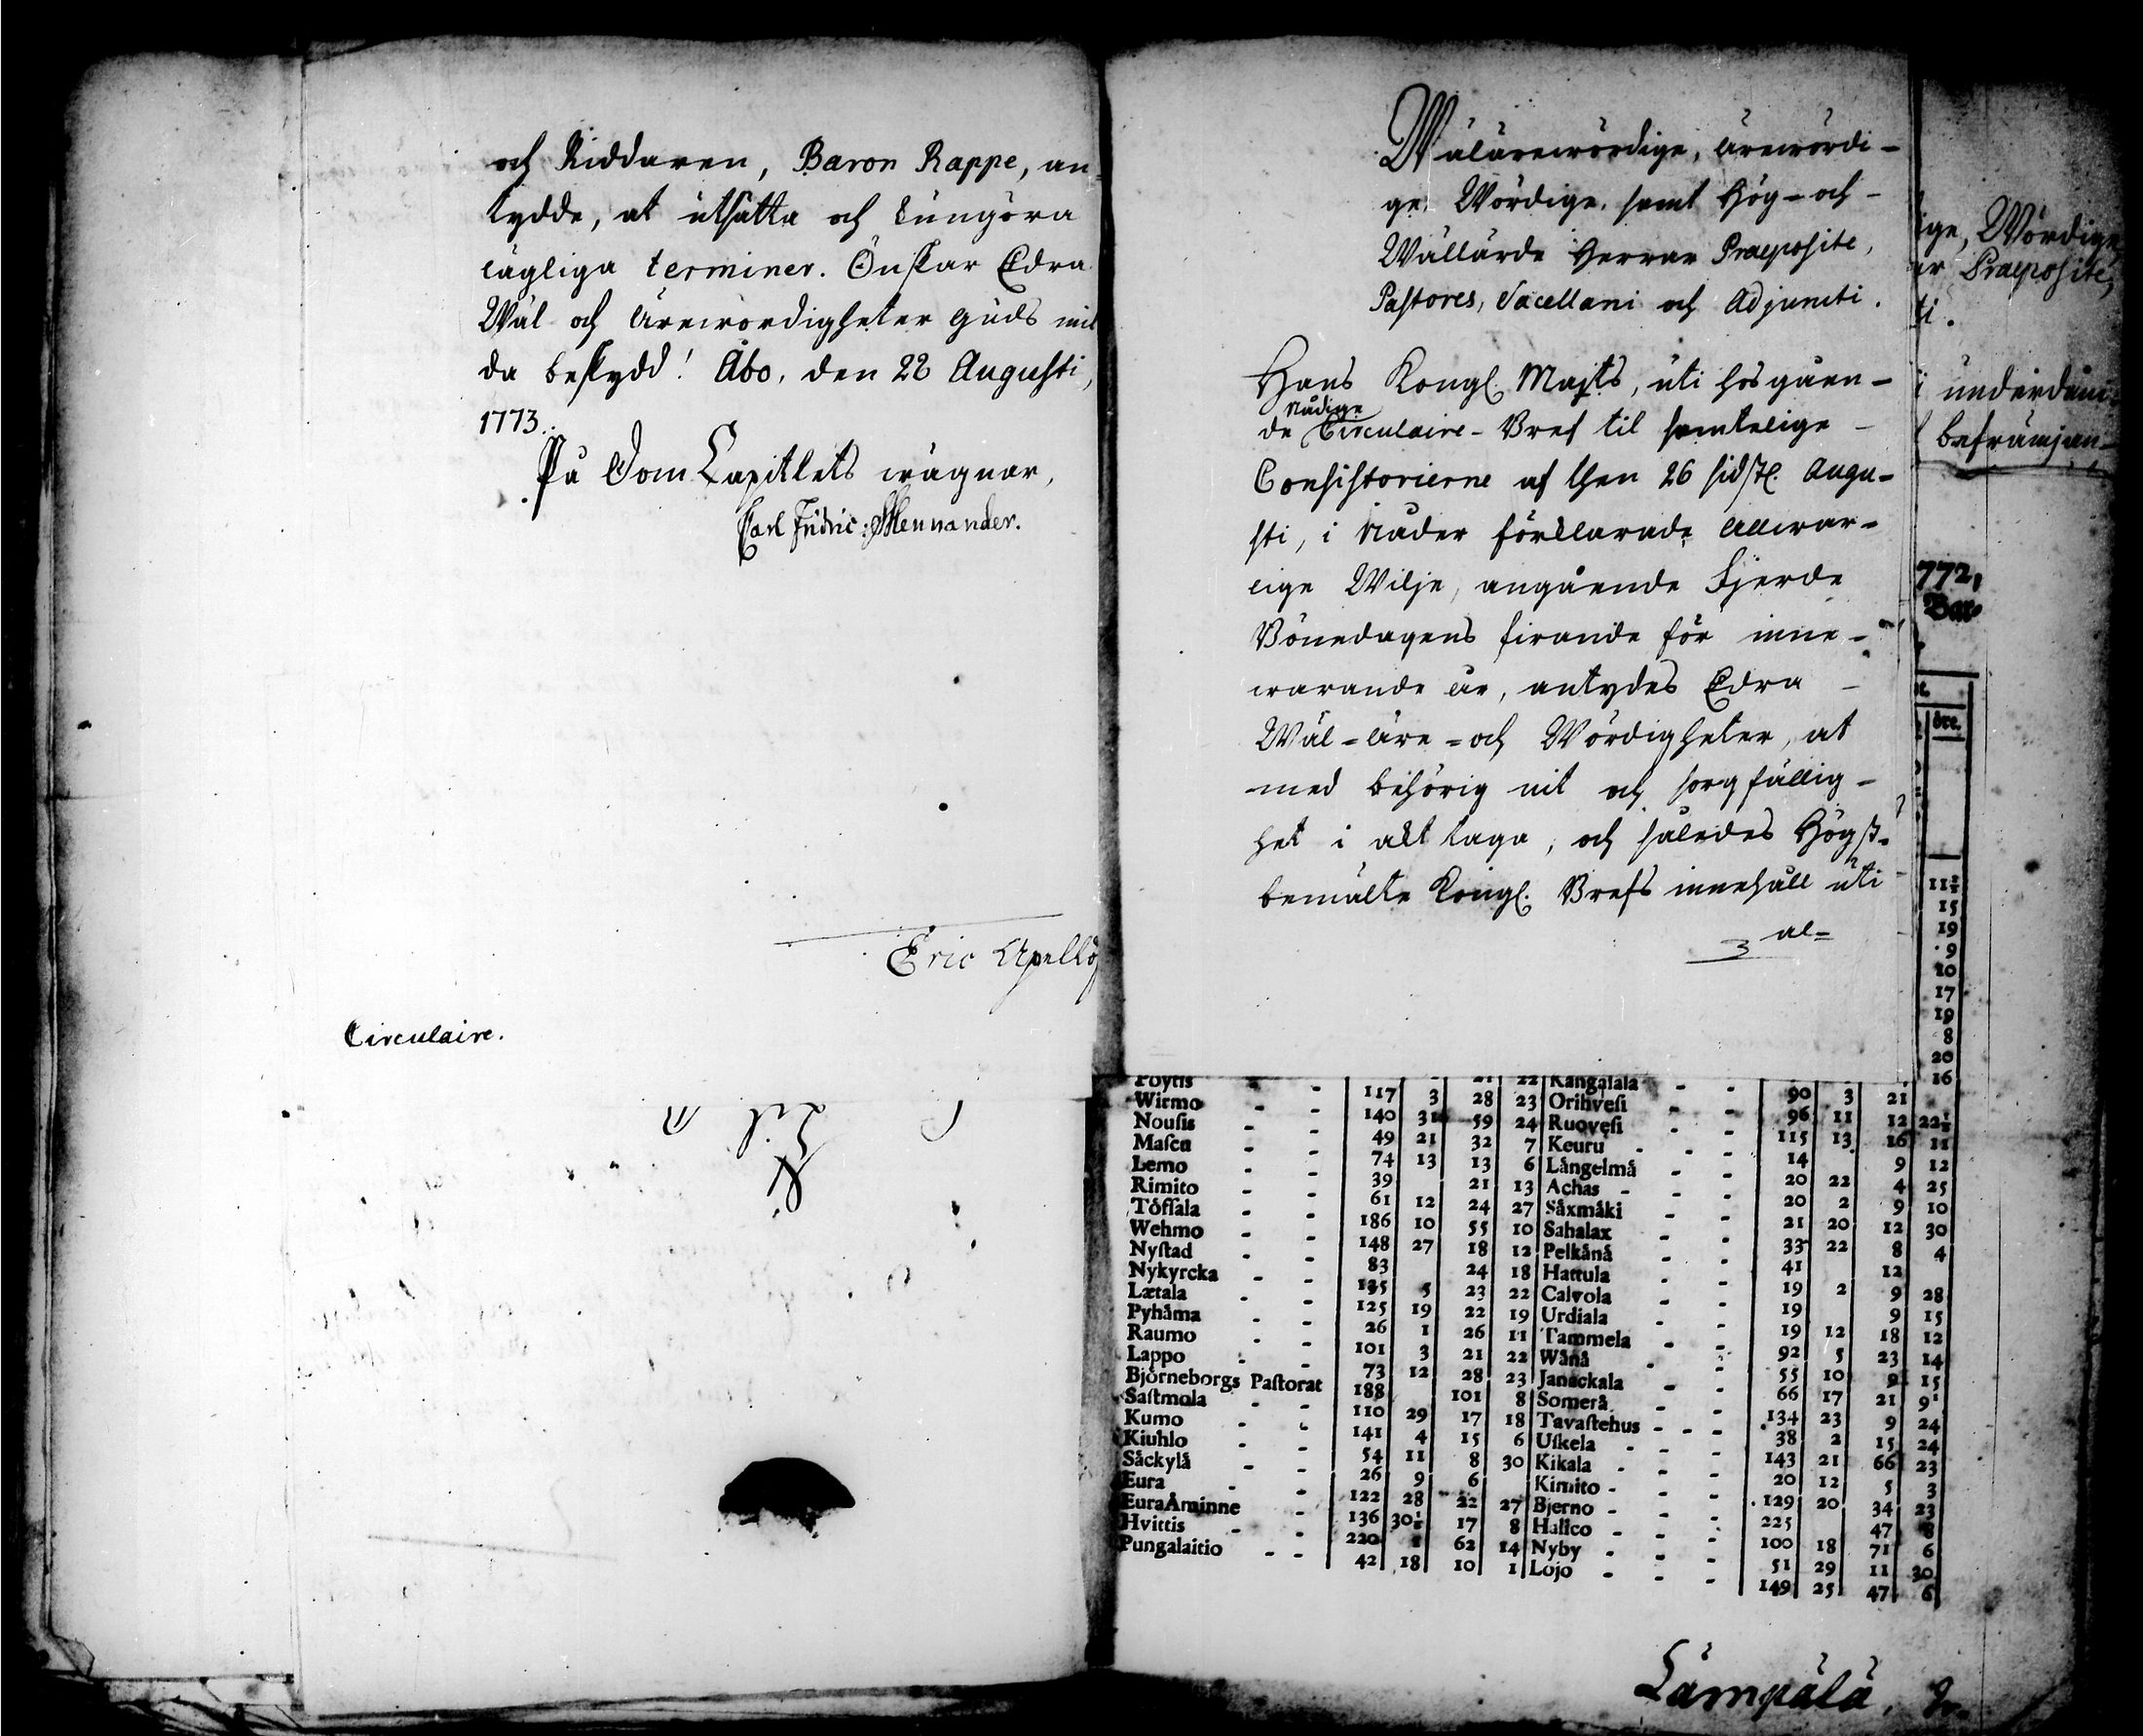 och Riddaren, Baron Rappe, an-
tydde, at utsätta och kungöra
lägliga terminer. Önskar Edra
Wäl och ärewördigheter Guds mil
da beskydd! Åbo, den 28 Augusti,
1773.
På Dom Capitlets wägnar,
Carl Fridric: Mennander.
Eric Apellöf
Circulaire.
Wälärewördige, ärewördi-
ge, Wördige, samt Hög- och
Wällärde Herrar Praeposite,
Pastores, Sacellani och Adjuncti.
Hans Kongl. Majts, uti hosgåen-
Nådige
de Circulaire-Bref til samtelige
Consistorierne af then 26 sidstl. Augu-
sti, i Nåder förklarade allwar-
lige Wilje, angående Fjerde
Bönedagens firande för inne-
warande år, antydes Edra
Wäl-äre- och Wördigheter, at
med behörig nit och sorgfällig-
het i akt taga, och således Högst-
bemälte Kongl. Brefs innehåll uti
al=
ige, Wördige,
ar Praeposite,
ti.
i underdån-
befrämjan-
772,
Bar
öre.
11½
15
19
9
10
17
19
8
20
16
Pöytis - - 21 22 Kangasala - -
Wirmo - - 117 3 28 23 Orihvesi - - 90 3 21
Nousis - - 140 31 59 24 Ruovesi - - 96 11 12 22½
Mascu - - 49 21 32 7 Keuru - - 115 13 16 11
Lemo - - 74 13 13 6 Långelmå - - 14 9 12
Rimito - - 39 21 13 Achas - - 20 22 4 25
Töfsala - - 61 12 24 27 Såxmåki - - 20 2 9 10
Wehmo - - 186 10 55 10 Sahalax - - 21 20 12 30
Nystad - - 148 27 18 12 Pelkånå - - 33 22 8 4
Nykyrcka - - 83 24 18 Hattula - - 41 12
Lætala - - 135 5 23 22 Calvola - - 19 2 9 28
Pyhåma - - 125 19 22 19 Urdiala - - 19 9 15
Raumo - - 26 1 26 11 Tammela - - 19 12 18 12
Lappo - - 101 3 21 22 Wånå - - 92 5 23 14
Björneborgs Pastorat 73 12 28 23 Janackala - - 55 10 9 15
Sastmola - - 188 101 8 Somerå - - 66 17 21 9
Kumo - - 110 29 17 18 Tavastehus - - - 134 23 9 24
Kiuhlo - - 141 4 15 6 Uskela - - 38 2 15 24
Såckylå - - 54 11 8 30 Kikala - - 143 21 66 23
Eura - - 26 9 6 Kimito - - 20 12 5 3
EuraÅminne - 122 28 22 27 Bjerno - - 129 20 34 23
Hvittis - - 136 30½ 17 8 Halico - - 225 47 8
Pungalaitio - - 220 62 14 Nyby - - 100 18 71 6
42 18 10 1 Lojo - - 51 29 11 30
149 25 47 6
Lämpälä,